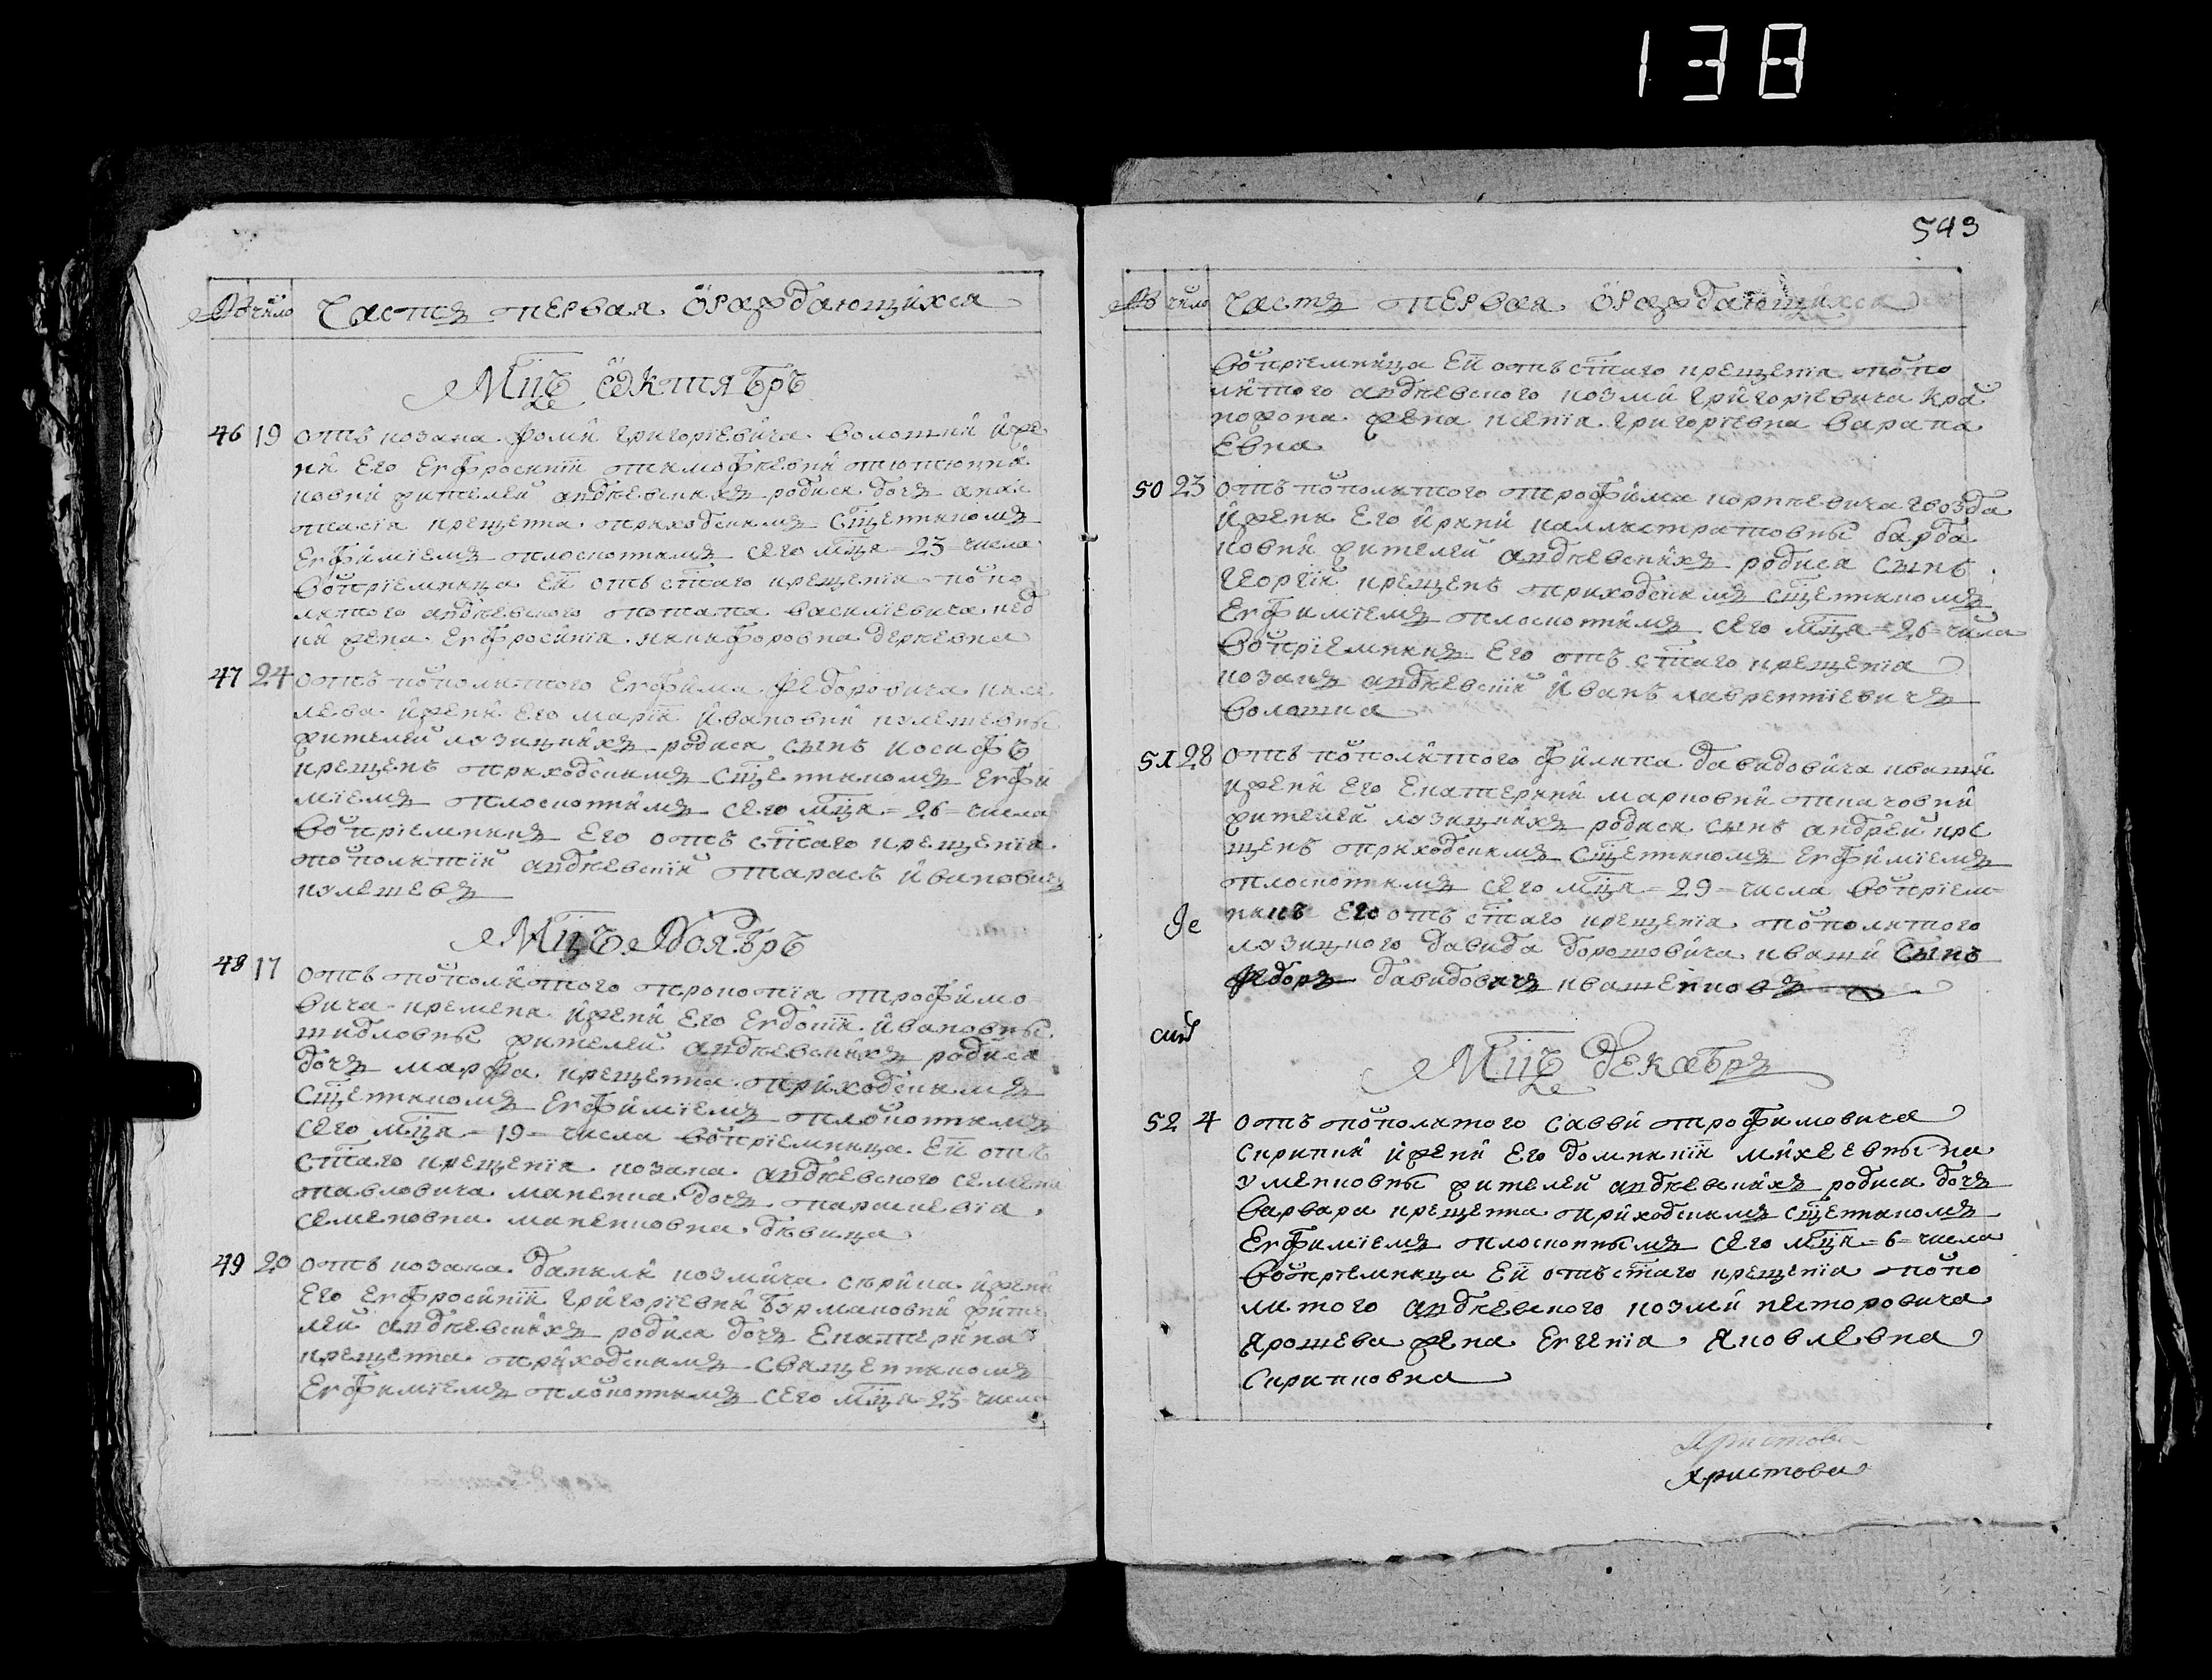 138
№ число Часть первая ѡ раждающихся
Мцъ Октябръ
46 19 отъ козака фоми григорїевича волоший и же
ни его евфросинїи тимофѣевни тютюнни
ковни жителей андрѣевскихъ родися дочъ анас
тасїа крещенна приходскимъ сщенникомъ
евфимїемъ плоскоттимъ сего мца 23 числа
воспрїемница ей отъ стаго крещенїя поспо
литого андрѣевского потапа василїевича
жена евфросинїя никифоровна
47 24 отъ посполитого евфима федоровича
лева и жени его марїи ивановни кулешевны
жителей лозицкихъ родися сынъ иосифъ
крещенъ приходскимъ сщенникомъ евфи
мїемъ плоскоттимъ сего мца = 26 = числа
воспрїемникъ его отъ стаго крещенїя
посполитїй андрѣевскїй тарасъ ивановичъ
кулешевъ
Мцъ Ноябръ
48 17 отъ посполитого прокопїя трофимо
вича кремена и жени его евдокїи ивановны
шидловны жителей андрѣевскихъ родися
дочъ марфа крещенна приходскимъ
сщенникомъ евфимїемъ плоскоттимъ
сего мца = 19 = числа воспрїемница ей отъ
стаго крещенїя козака андрѣевского семена
павловича маненка дочъ параскевїа
семеновна маненковна дѣвица
49 20 отъ козака данили козмича скрипа и жени
его евфросинїи григорїевни бурмаковни жите
лей андрѣевскихъ родися дочъ екатерина
крещенна приходскимъ священникомъ
евфимїемъ плоскоттимъ сего мца 23 числа
543
№ число Часть первая ѡ раждающихся
воспрїемница ей отъ стаго крещенїя поспо
литого андрѣевского козми григорїевича крас
нофона жена ксенїя григорїевна варапа
евна
50 23 отъ посполитого трофима корнѣевича гвозда
и жени его ирини каллистратовны барба
ковни жителей андрѣевскихъ родися сынъ
георгїй крещенъ приходскимъ сщенникомъ
евфимїемъ плоскоттимъ сего мца = 26 = числа
воспрїемникъ его отъ стаго крещенїя
козакъ андрѣевскїй иванъ лаврентїевичъ
волошка
51 28 отъ посполитого филипа давидовича кваши
и жени его екатерини марковни ткачовни
жителей лозицкихъ родися сынъ андрей кре
щенъ приходскимъ сщенникомъ евфимїемъ
плоскоттимъ сего мца = 29 = числа воспрїем
никъ его отъ стаго крещенїя посполитого
лозицкого давида дорошовича кваши сынъ
федоръ давидовичъ квашенковъ
Мцъ Декабръ
52 4 отъ посполитого савви трофимовича
скрипки и жени его домникїи михеевны на
уменковны жителей андрѣевскихъ родися дочъ
варвара крещенна приходскимъ сщенникомъ
евфимїемъ плоскоттнымъ сего мца = 6 = числа
воспрїемница ей отъ стаго крещенїя поспо
литого андрѣевского козми несторовича
ярошева жена евгенїя яковлевна
скрипковна
христова
христова